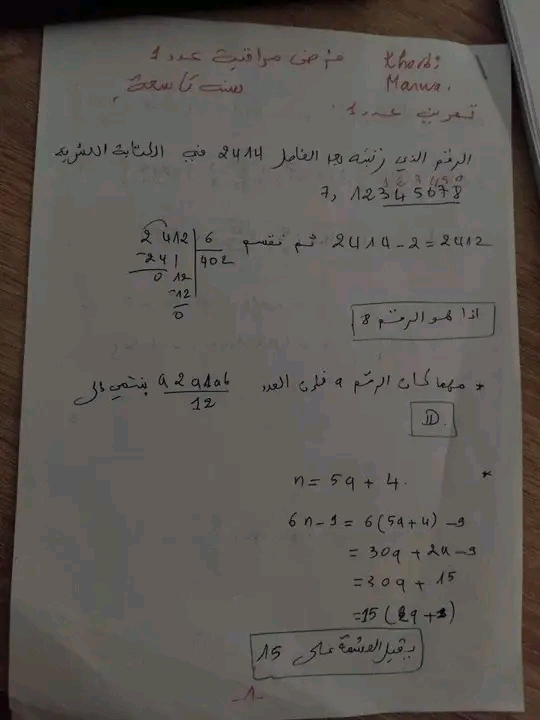 فرض مراقبة عدد 1
Marwa.
سنة تاسعة
تمرين عدد 1
الرقم الذي رتبته بعد الفاصل 2414 في الكتابة العشرية
7, 12345678
2414 - 2 = 2412 ثم نقسم
2412 | 6
-241 | 402
0 12
-12
0
اذا هو الرقم 8
* مهما كان الرقم a فإن العدد
12
ينتمي الى
ID.
* n = 5q + 4.
6n - 9 = 6(5q+4) - 9
= 30q + 24 - 9
= 30q + 15
= 15 (2q + 1)
يقبل القسمة على 15
-1-